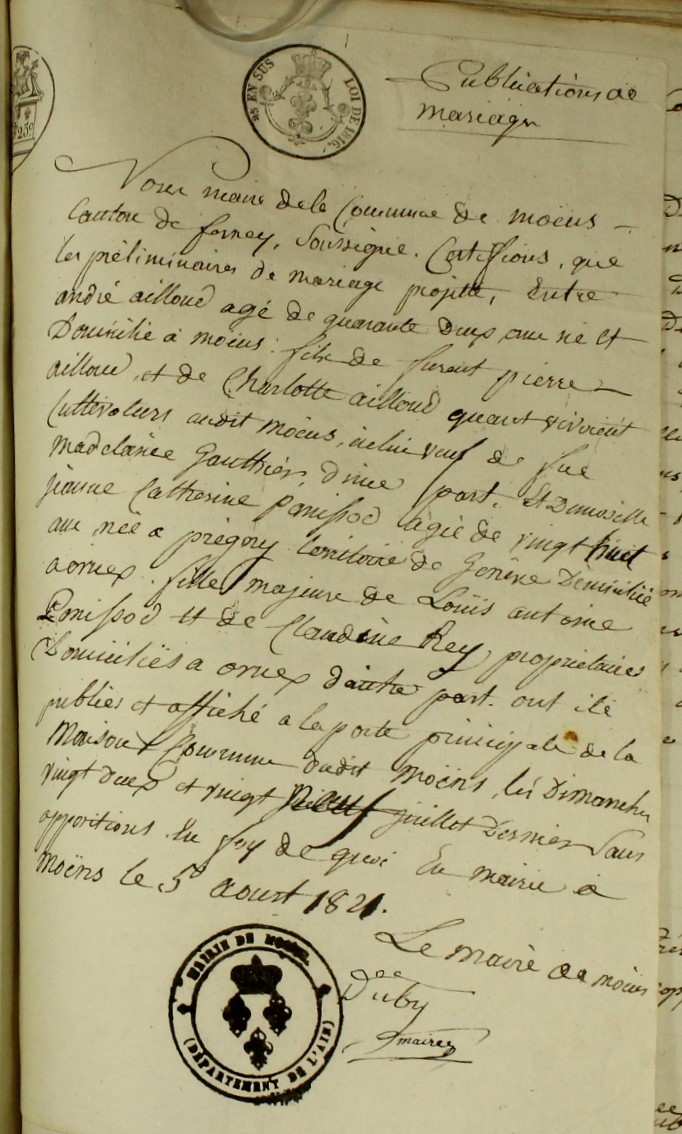 25 EN SUS
LOI DE 1816.
Publications de
mariage
Nous maire de la Commune de moëns
Canton de ferney, Soussigné, Certifions, que
les préliminaires de mariage projetté, Entre
andré ailloud agé de quarante deux ans né et
Domicilié à moëns : fils de furent pierre
ailloud, et de Charlotte ailloud quant vivoient
Cultivateurs audit Moëns, icelui veuf de fue
Madelaine Gauthier, d'une part. Et Demoiselle
jeanne Catherine Panissod agée de vingt huit
ans née à prégny territoire de Genêve Domiciliée
a ornex. fille majeure de Loüis antoine
Panissod et de Claudine Rey propriétaires
Domiciliés a ornex d'autre part. ont été
publiés et affiché a la porte principale de la
Maison Commune dudit Moëns, les Dimanches
vingt deux et vingt neuf juillet Dernier Sans
oppositions En foy de quoi En mairie à
Moëns le 5 aoust 1821.
Le maire de moëns
Duby
maire
MAIRIE DE MOËNS.
(DÉPARTEMENT DE L'AIN)